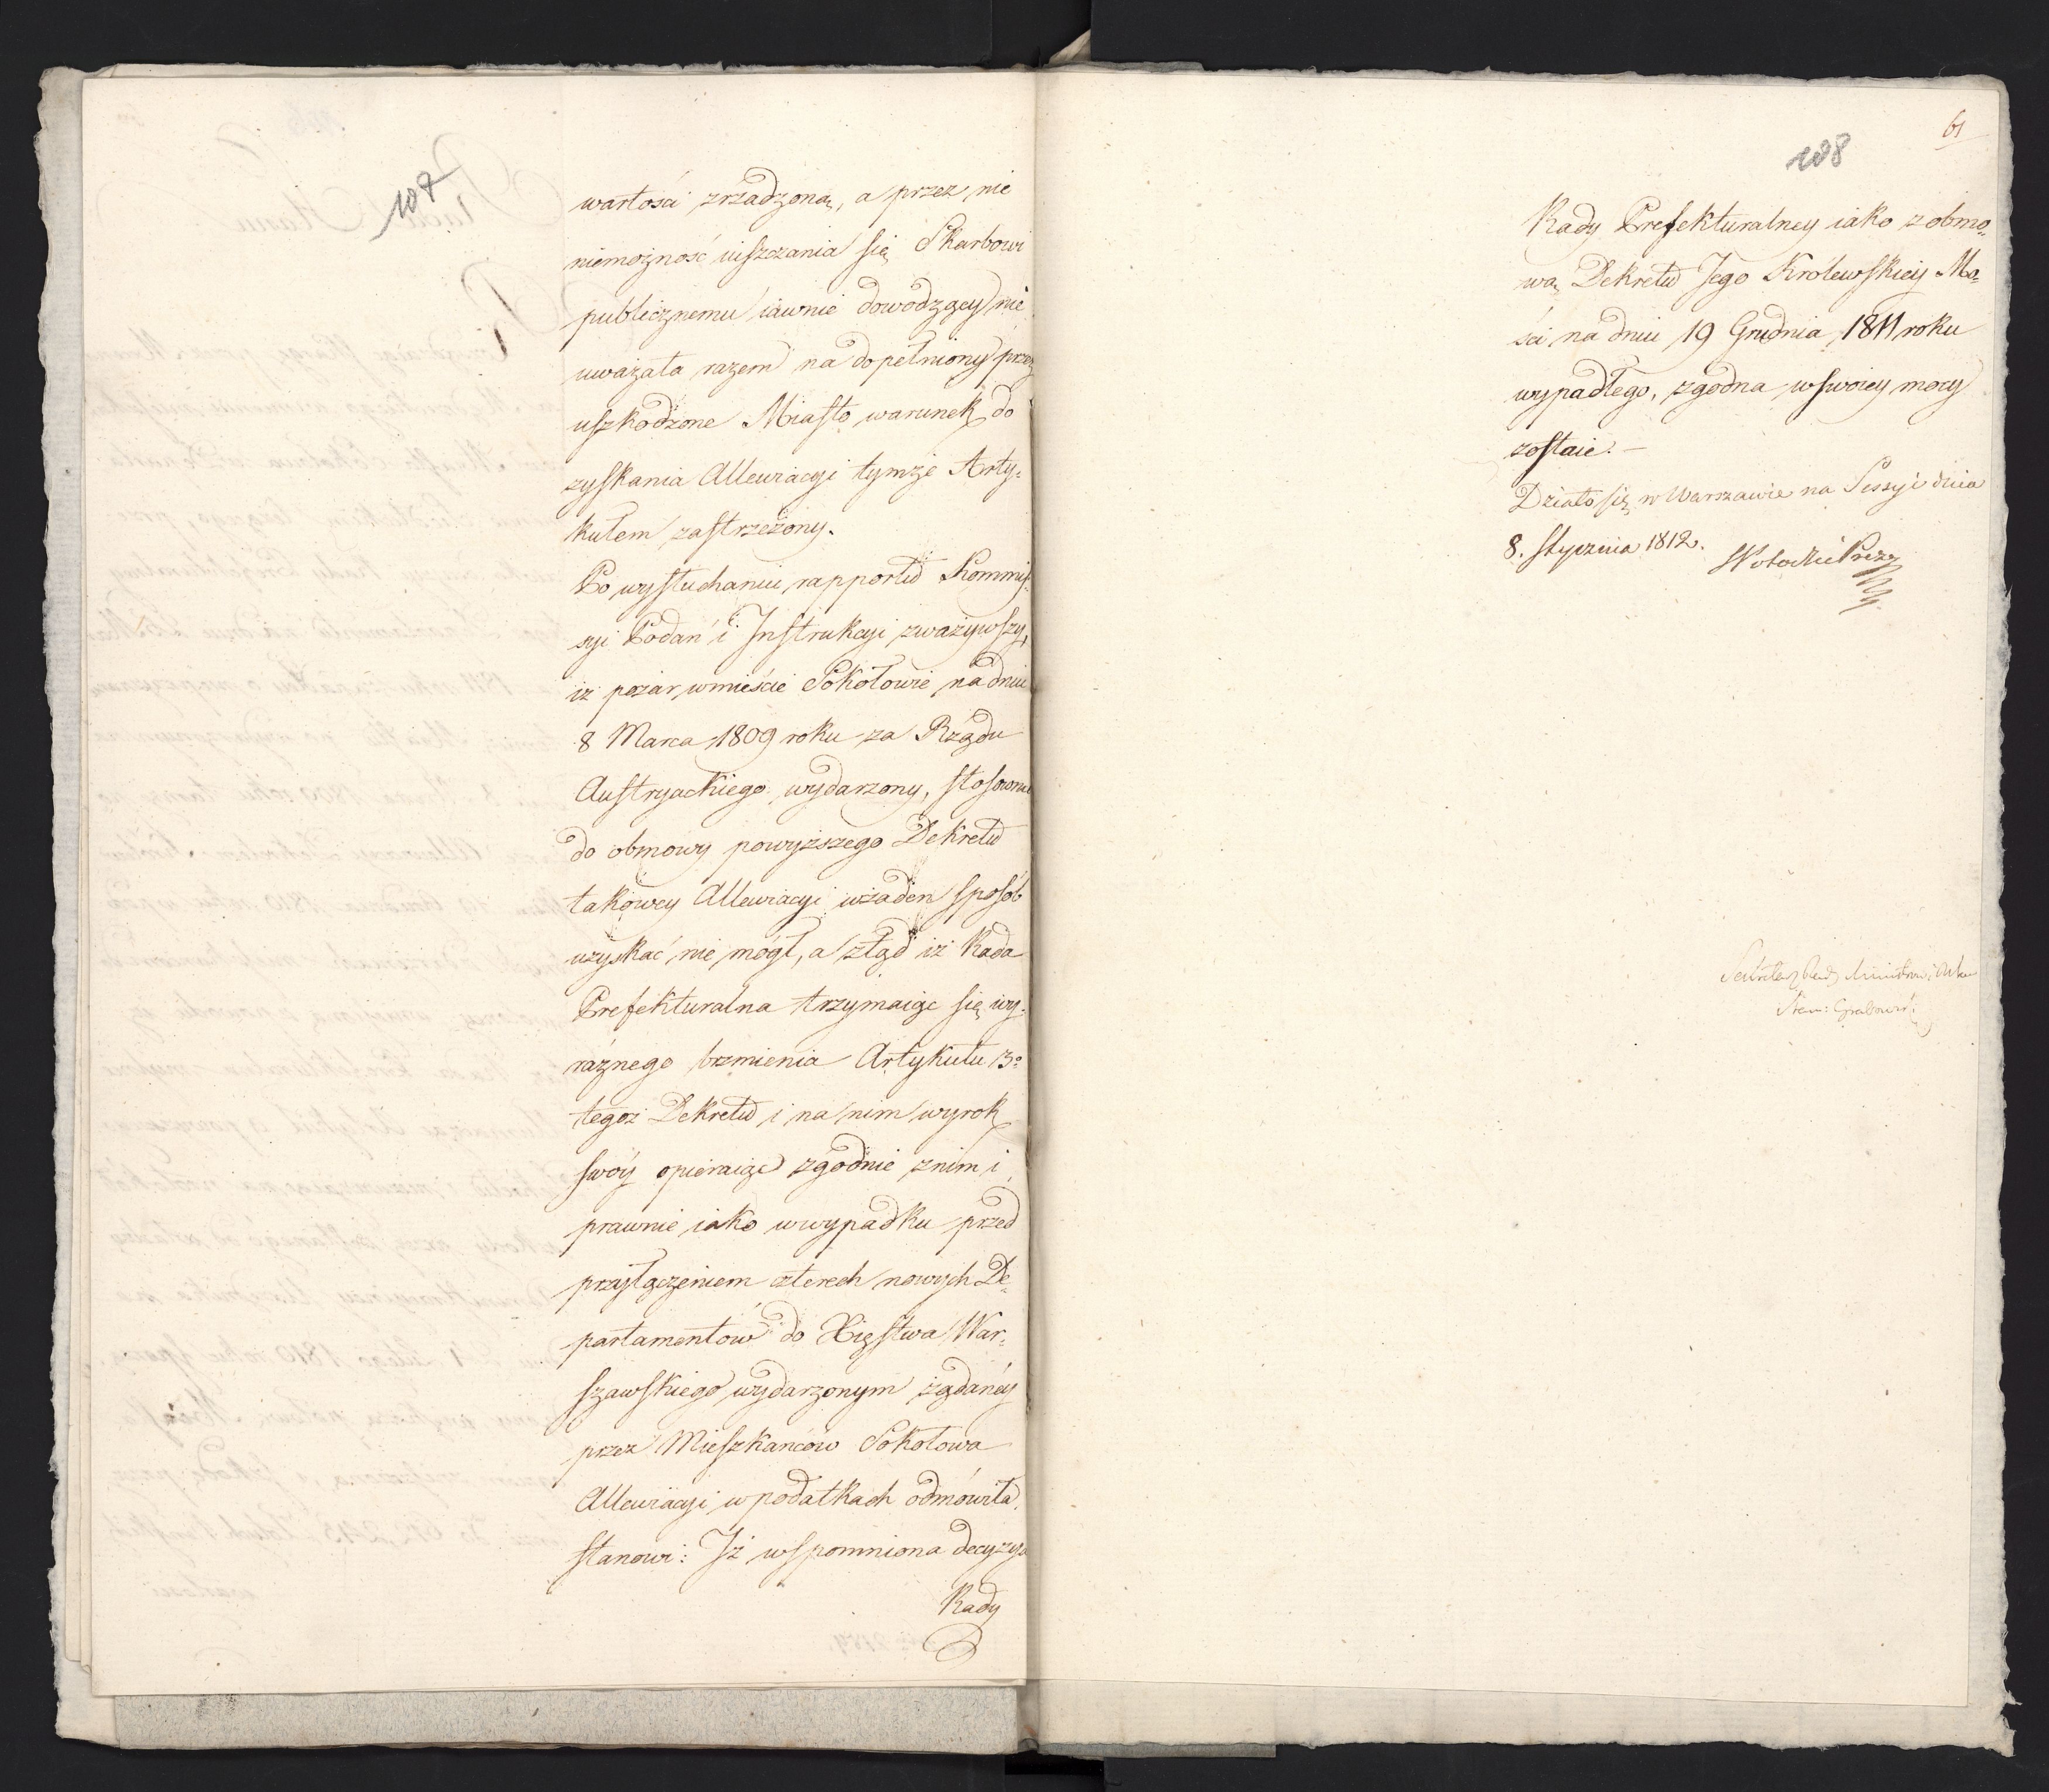 107
wartości zrządzoną, a przez nie
niemożność uiszczania się Skarbowi
publicznemu iawnie dowodzący nie
uważała razem na dopełniony przez
uszkodzone Miasto warunek do
zyskania Allewiacyi tymże Arty-
kułem zastrzeżony.
Po wysłuchaniu rapportu Kommis-
syi Podań i Instrukcyi zważywszy,
iż pożar wmieście Sokołowie na dniu
8 Marca 1809 roku za Rządu
Austryackiego wydarzony, stosownie
do obmowy powyższego Dekretu
takowey Allewiacyi wżaden sposób
uzyskać nie mógł, a ztąd iż Rada
Prefekturalna trzymaiąc się wy-
raźnego brzmienia Artykułu 3º
tegoż Dekretu i na nim wyrok
swóy opieraiąc zgodnie znim i
prawnie iako wwypadku przed
przyłączeniem czterech nowych De-
partamentów do Xięstwa War-
szawskiego wydarzonym żądaney
przez Mieszkańców Sokołowa
Allewiacyi wpodatkach odmówiła.
stanowi: Iż wspomniona decyzya
Rady
61
108
Rady Prefekturalney iako z obmo-
wą Dekretu Jego Królewskiey Mo-
ści na dniu 19 Grudnia 1811 roku
wypadłego, zgodna wswoiey mocy
zostaie. —
Działo się w Warszawie na Sessyi dnia
8. stycznia 1812.
Sekretarz Rady
Stan: Grabowski